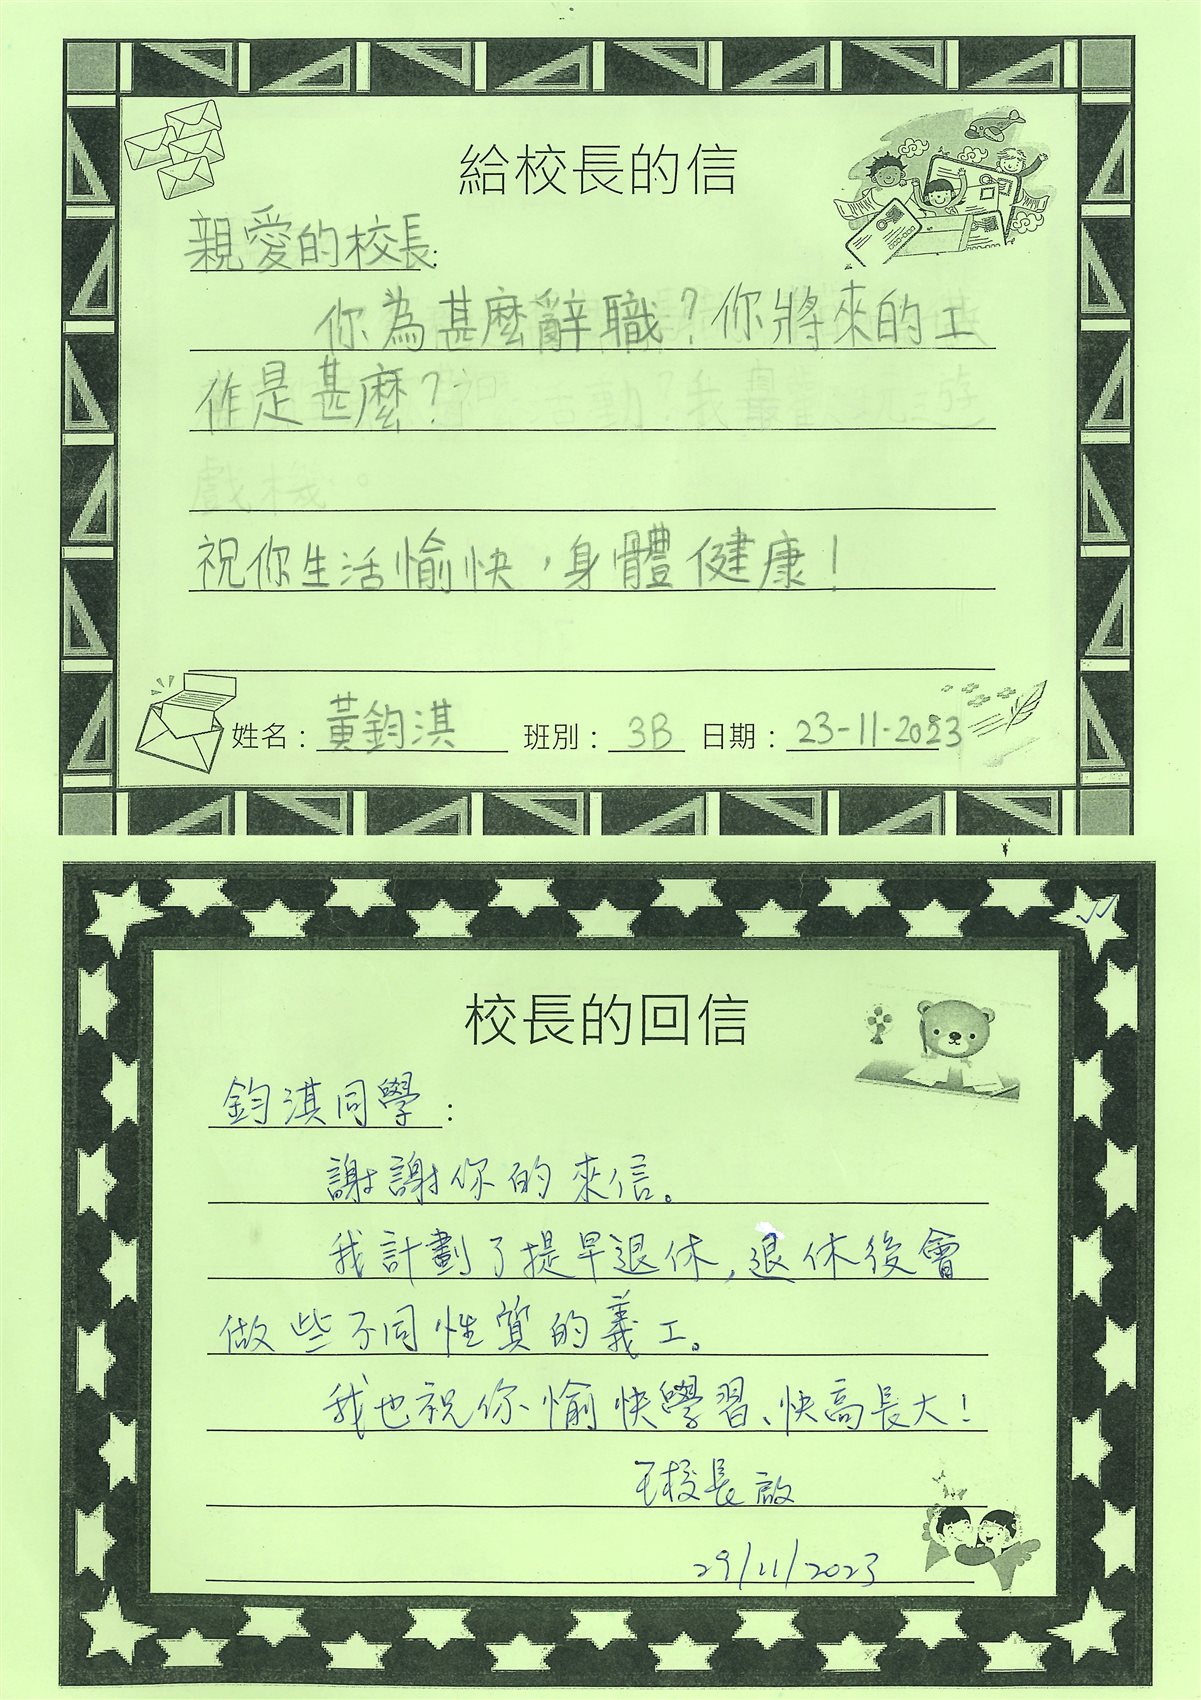 給校長的信
親愛的校長:
你為甚麼辭職?你將來的工
作是甚麼?
戲機。
祝你生活愉快,身體健康!
姓名:黃鈞淇 班別:3B 日期:23-11-2023
校長的回信
鈞淇同學:
謝謝你的來信。
我計劃了提早退休,退休後會
做些不同性質的義工。
我也祝你愉快學習、快高長大!
王校長啟
29/11/2023